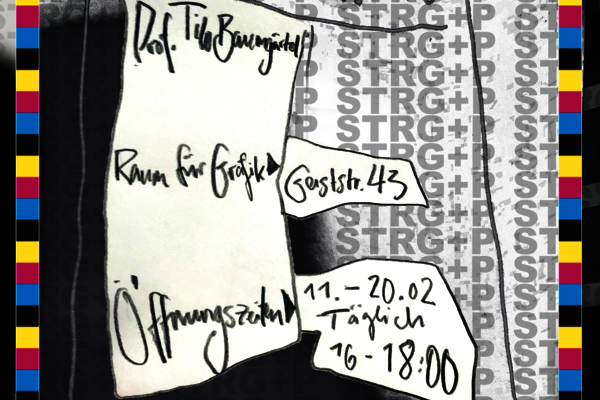 Prof. Tilo Baumgärtel
Raum für Grafik
Geiststr. 43
Öffnungszeiten
11. - 20.02
Täglich
16 - 18:00
STRG+P
STRG+P
STRG+P
STRG+P
STRG+P
STRG+P
STRG+P
STRG+P
STRG+P
STRG+P
STRG+P
STRG+P
STRG+P